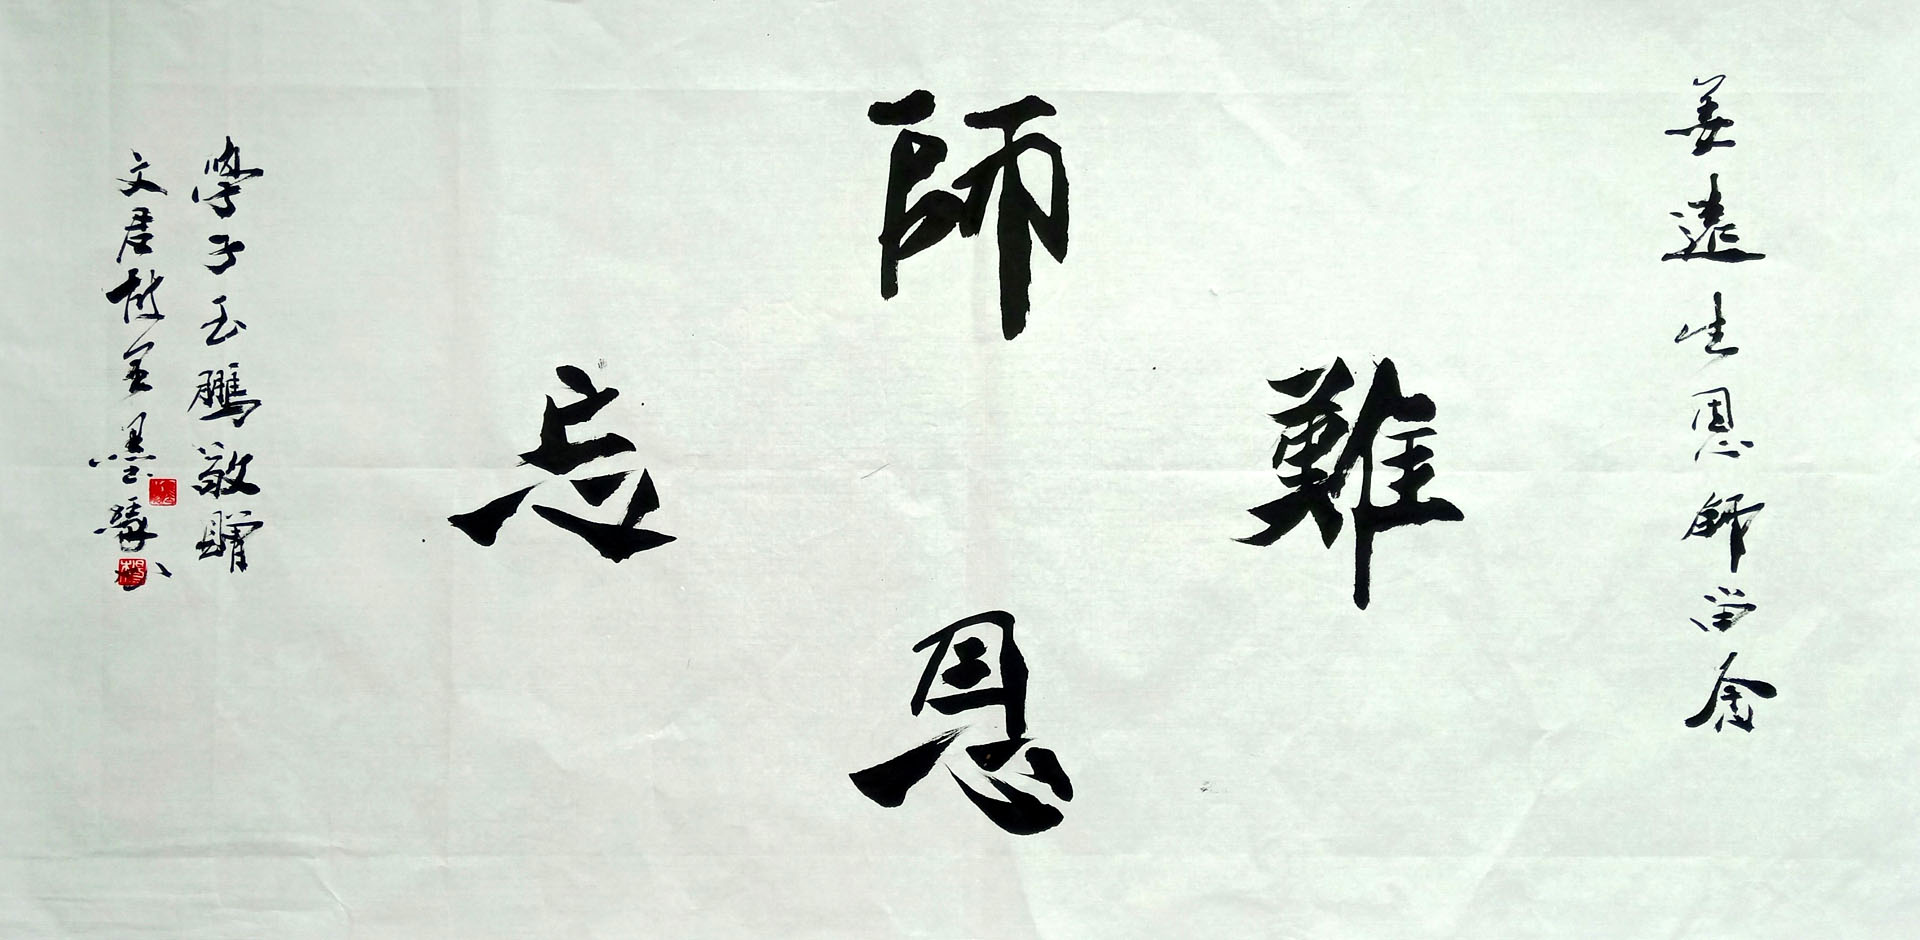 姜遠生恩師留念
師
恩
難
忘
學子玉鵬敬贈
文 墨